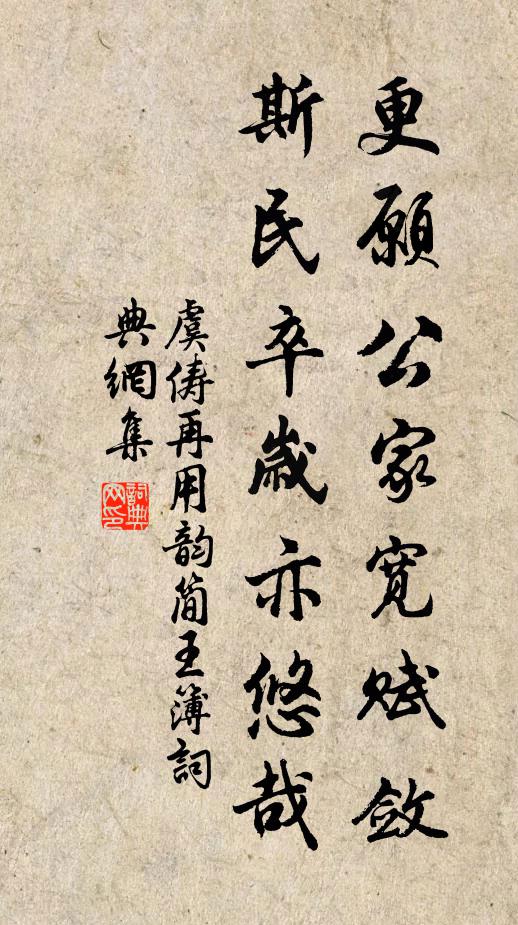 更願公家寬賦斂
斯民卒歲亦悠哉
虞儔再用韵簡王簿詞
典網集
詞典
網印